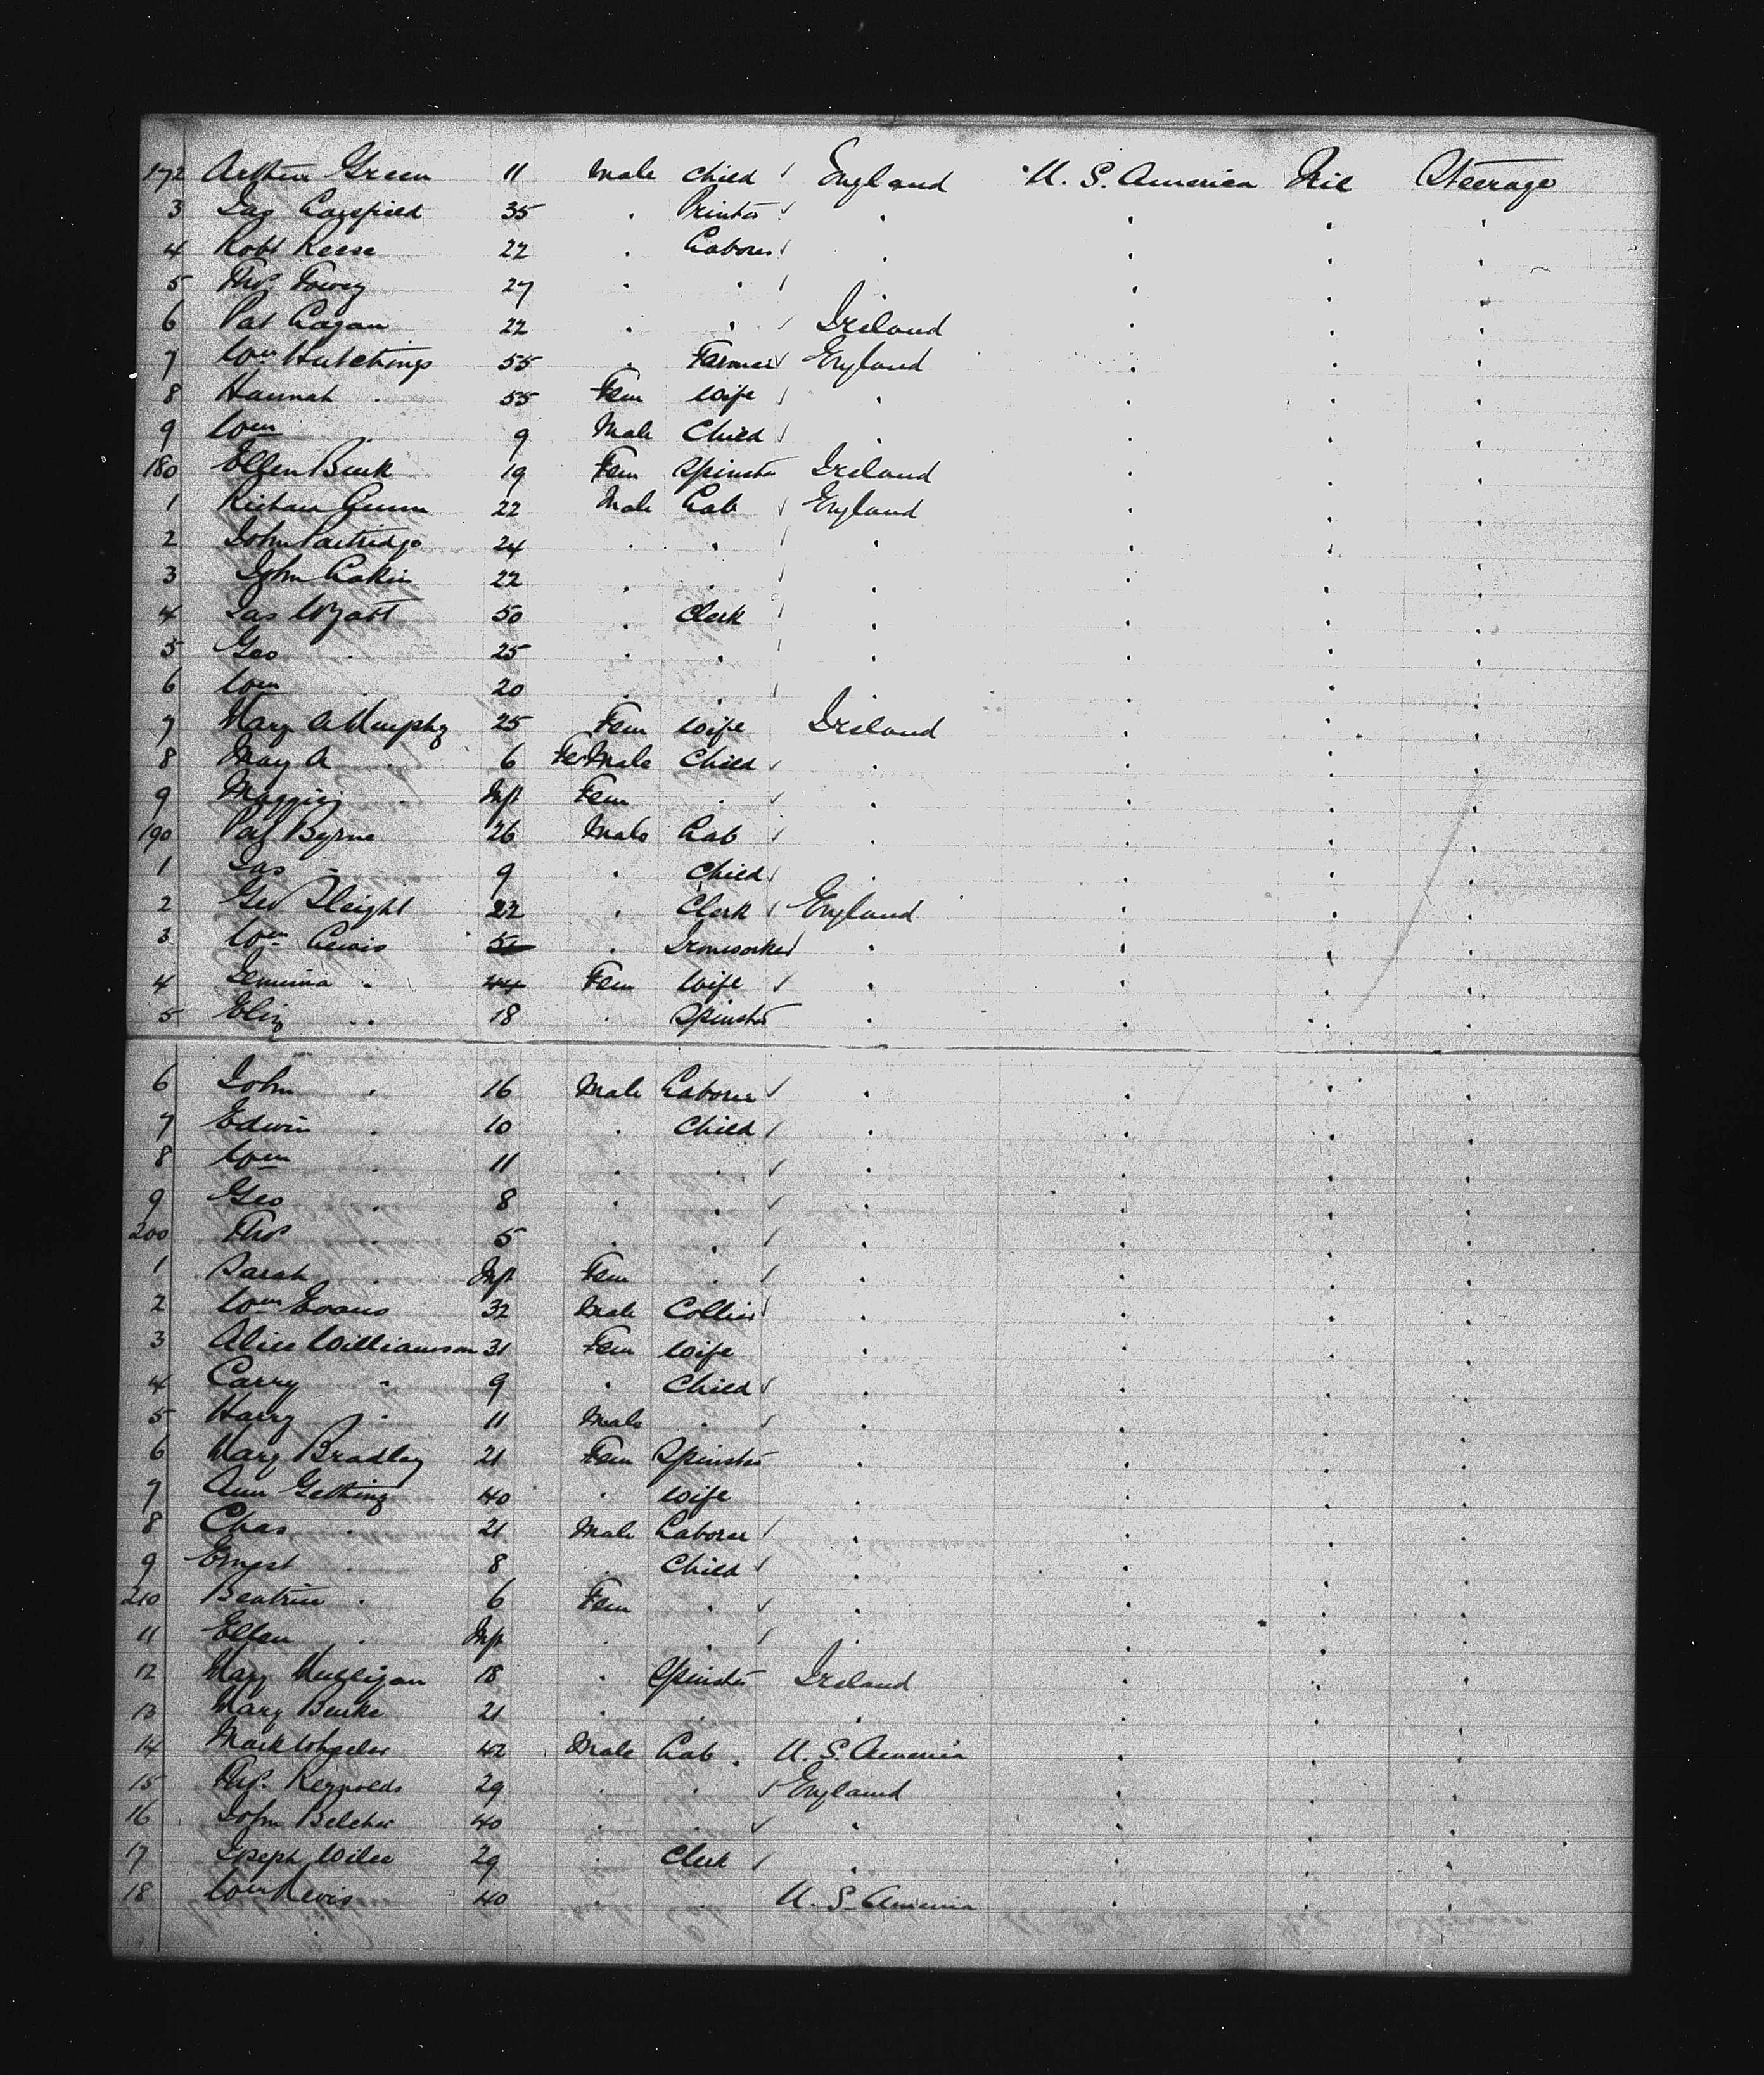 172 Arthur Green 11 Male Child ✓ England U. S. America Nil Steerage
3 Jas 35 . Printer ✓ . . . .
4 Robt Reese 22 . Laborer ✓ . . . .
5 Thos 27 . . ✓ . . .
6 Pat 22 . . ✓ Ireland . . .
7 Wm Hutchings 55 . Farmer ✓ England . . .
8 Hannah . 55 Fem Wife ✓ . . . .
9 Wm . 9 Male Child ✓ . . . .
180 Ellen Burk 19 Fem Spinster Ireland . . .
1 22 Male Lab ✓ England . . .
2 John Partridge 24 . . ✓ . . . .
3 John Lakin 22 . . ✓ . . . .
4 Jas Wyatt 50 . Clerk ✓ . . . .
5 Geo . 25 . . ✓ . . . .
6 Wm . 20 . . ✓ . . .
7 Mary A Murphy 25 Fem Wife Ireland . . .
8 May A . 6 FeMale Child ✓ . . . .
9 . Inft Fem . ✓ . . . .
190 Pat Byrne 26 Male Lab ✓ . . . .
1 Jas . 9 . Child ✓ . . . .
2 Geo Sleight 22 . Clerk ✓ England . . .
3 Wm Lewis . Ironworker ✓ . . . .
4 Jemima . 44 Fem Wife ✓ . . . .
5 Eliz . . 18 . Spinster . . . .
6 John . 16 Male Laborer ✓ . . . .
7 Edwin . 10 . Child ✓ . . . .
8 Wm . 11 . . ✓ . . . .
9 Geo . 8 . . ✓ . . . .
200 Thos . 5 . . ✓ . . . .
1 Sarah . Inft Fem . ✓ . . . .
2 Wm Evans 32 Male Collier ✓ . . . .
3 Alice Williamson 31 Fem Wife . . . .
4 Carry . 9 . Child ✓ . . . .
5 Harry . 11 Male . ✓ . . . .
6 Mary Bradley 21 Fem Spinster . . . .
7 Ann Gething 40 . Wife . . . .
8 Chas . 21 Male Laborer ✓ . . . .
9 Ernest . 8 . Child ✓ . . . .
210 Beatrice . 6 Fem . ✓ . . . .
11 Ellen . Inft . . ✓ . . . .
12 Mary Mulligan 18 . Spinster Ireland . . .
13 Mary Burke 21 . . . . . .
14 Mark Wheeler 42 Male Lab . U. S. America . . .
15 Thos. Reynolds 29 . . ✓ England . . .
16 John Belcher 40 . . ✓ . . . .
17 Joseph 29 . Clerk ✓ . . . .
18 Wm 40 . . U. S. America . . .